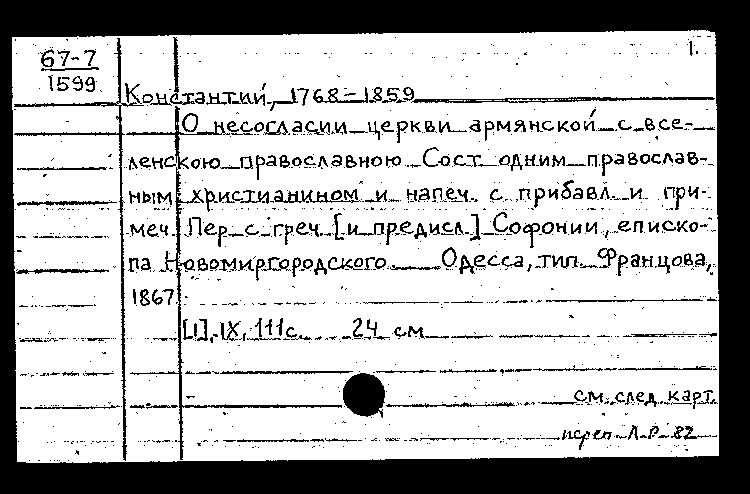 1.
67-7
1599
Константий, 1768-1859
О несогласии церкви армянской с все-
ленскою православною Сост одним православ-
ным христианином и напеч. с прибавл и при-
меч. Пер с греч [и предисл.] Софонии, еписко-
па Новомиргородского Одесса, тип Францова,
1867
[1], IX, 111 с. 24 см
см. след карт.
переп Л.Р. 82